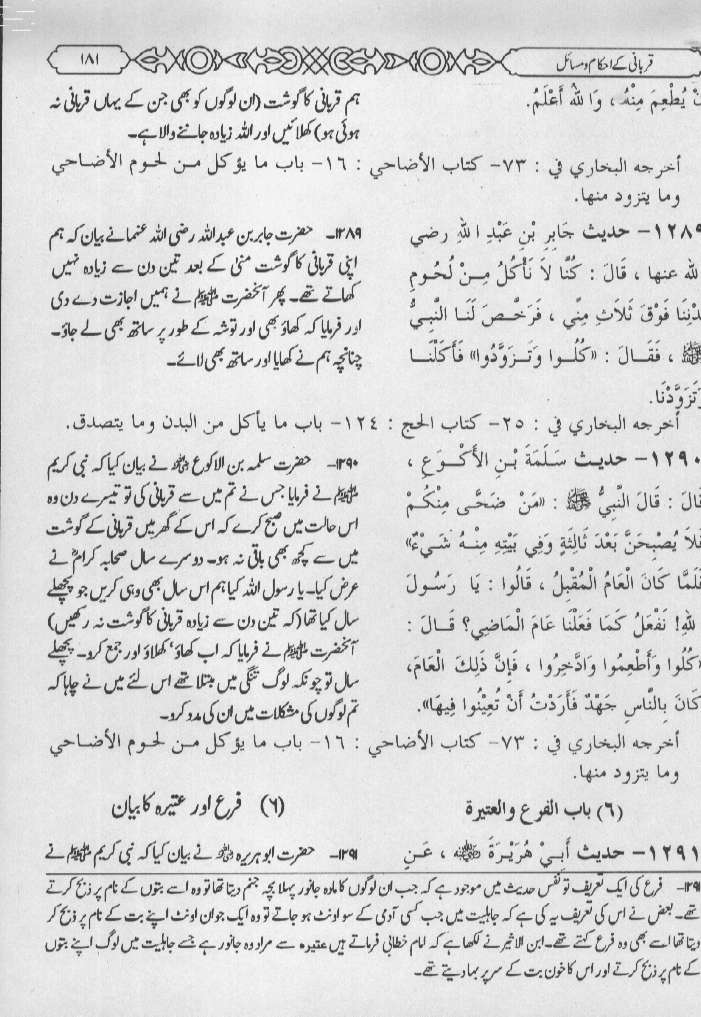 قربانی کے احکام و مسائل
۱۸۱
نْ يُطْعِمَ مِنْهُ ، وَاللهُ أَعْلَمُ.
ہم قربانی کا گوشت (ان لوگوں کو بھی جن کے یہاں قربانی نہ
ہوئی ہو) کھلائیں اور اللہ زیادہ جاننے والا ہے۔
أخرجه البخاري في : ٧٣- كتاب الأضاحي : ١٦- باب ما يؤكل من لحوم الأضاحي
وما يتزود منها.
١٢٨٩- حديث جَابِرِ بْنِ عَبْدِ اللهِ رضي
لله عنها ، قَالَ : كُنَّا لاَ نَأْكُلُ مِنْ لُحُومِ
بُدْنِنَا فَوْقَ ثَلاَثِ مِنًى ، فَرَخَّصَ لَنَا النَّبِيُّ
ﷺ ، فَقَالَ : «كُلُوا وَتَزَوَّدُوا» فَأَكَلْنَا
وَتَزَوَّدْنَا.
۱۲۸۹۔ حضرت جابر بن عبداللہ رضی اللہ عنہما نے بیان کیا کہ ہم
اپنی قربانی کا گوشت منیٰ کے بعد تین دن سے زیادہ نہیں
کھاتے تھے۔ پھر آنحضرت ﷺ نے ہمیں اجازت دے دی
اور فرمایا کہ کھاؤ بھی اور توشہ کے طور پر ساتھ بھی لے جاؤ۔
چنانچہ ہم نے کھایا اور ساتھ بھی لائے۔
أخرجه البخاري في : ٢٥- كتاب الحج : ١٢٤- باب ما يأكل من البدن وما يتصدق.
١٢٩٠- حديث سَلَمَةَ بْنِ الأَكْوَعِ ،
قَالَ : قَالَ النَّبِيُّ ﷺ : «مَنْ ضَحَّى مِنْكُمْ
فَلاَ يُصْبِحَنَّ بَعْدَ ثَالِثَةٍ وَفِي بَيْتِهِ مِنْهُ شَيْءٌ»
فَلَمَّا كَانَ الْعَامُ الْمُقْبِلُ ، قَالُوا : يَا رَسُولَ
للهِ! نَفْعَلُ كَمَا فَعَلْنَا عَامَ الْمَاضِي؟ قَالَ :
«كُلُوا وَأَطْعِمُوا وَادَّخِرُوا ، فَإِنَّ ذَلِكَ الْعَامَ،
كَانَ بِالنَّاسِ جَهْدٌ فَأَرَدْتُ أَنْ تُعِينُوا فِيهَا».
۱۲۹۰۔ حضرت سلمہ بن الاکوع رضی اللہ عنہ نے بیان کیا کہ نبی کریم
ﷺ نے فرمایا جس نے تم میں سے قربانی کی تو تیسرے دن وہ
اس حالت میں صبح کرے کہ اس کے گھر میں قربانی کے گوشت
میں سے کچھ بھی باقی نہ ہو۔ دوسرے سال صحابہ کرامؓ نے
عرض کیا۔ یا رسول اللہ کیا ہم اس سال بھی وہی کریں جو پچھلے
سال کیا تھا (کہ تین دن سے زیادہ قربانی کا گوشت نہ رکھیں)
آنحضرت ﷺ نے فرمایا کہ اب کھاؤ' کھلاؤ اور جمع کرو۔ پچھلے
سال تو چونکہ لوگ تنگی میں مبتلا تھے اس لئے میں نے چاہا کہ
تم لوگوں کی مشکلات میں ان کی مدد کرو۔
أخرجه البخاري في : ٧٣- كتاب الأضاحي : ١٦- باب ما يؤكل من لحوم الأضاحي
وما يتزود منها.
(٦) باب الفرع والعتيرة
(۶) فرع اور عتیرہ کا بیان
١٢٩١- حديث أَبِيْ هُرَيْرَةَ رضی اللہ عنہ ، عَنِ
۱۲۹۱۔ حضرت ابو ہریرہ رضی اللہ عنہ نے بیان کیا کہ نبی کریم ﷺ نے
۱۲۹۱۔ فرع کی ایک تعریف تو نفس حدیث میں موجود ہے کہ جب ان لوگوں کا مادہ جانور پہلا بچہ جنم دیتا تھا تو وہ اسے بتوں کے نام پر ذبح کرتے
تھے۔ بعض نے اس کی تعریف یہ کی ہے کہ جاہلیت میں جب کسی آدمی کے سو اونٹ ہو جاتے تو وہ ایک جوان اونٹ اپنے بت کے نام پر ذبح کر
دیتا تھا اسے بھی وہ فرع کہتے تھے۔ ابن الاثیر نے لکھا ہے کہ امام خطابی فرماتے ہیں عتیرہ سے مراد وہ جانور ہے جسے جاہلیت میں لوگ اپنے بتوں
کے نام پر ذبح کرتے اور اس کا خون بت کے سر پر بہا دیتے تھے۔